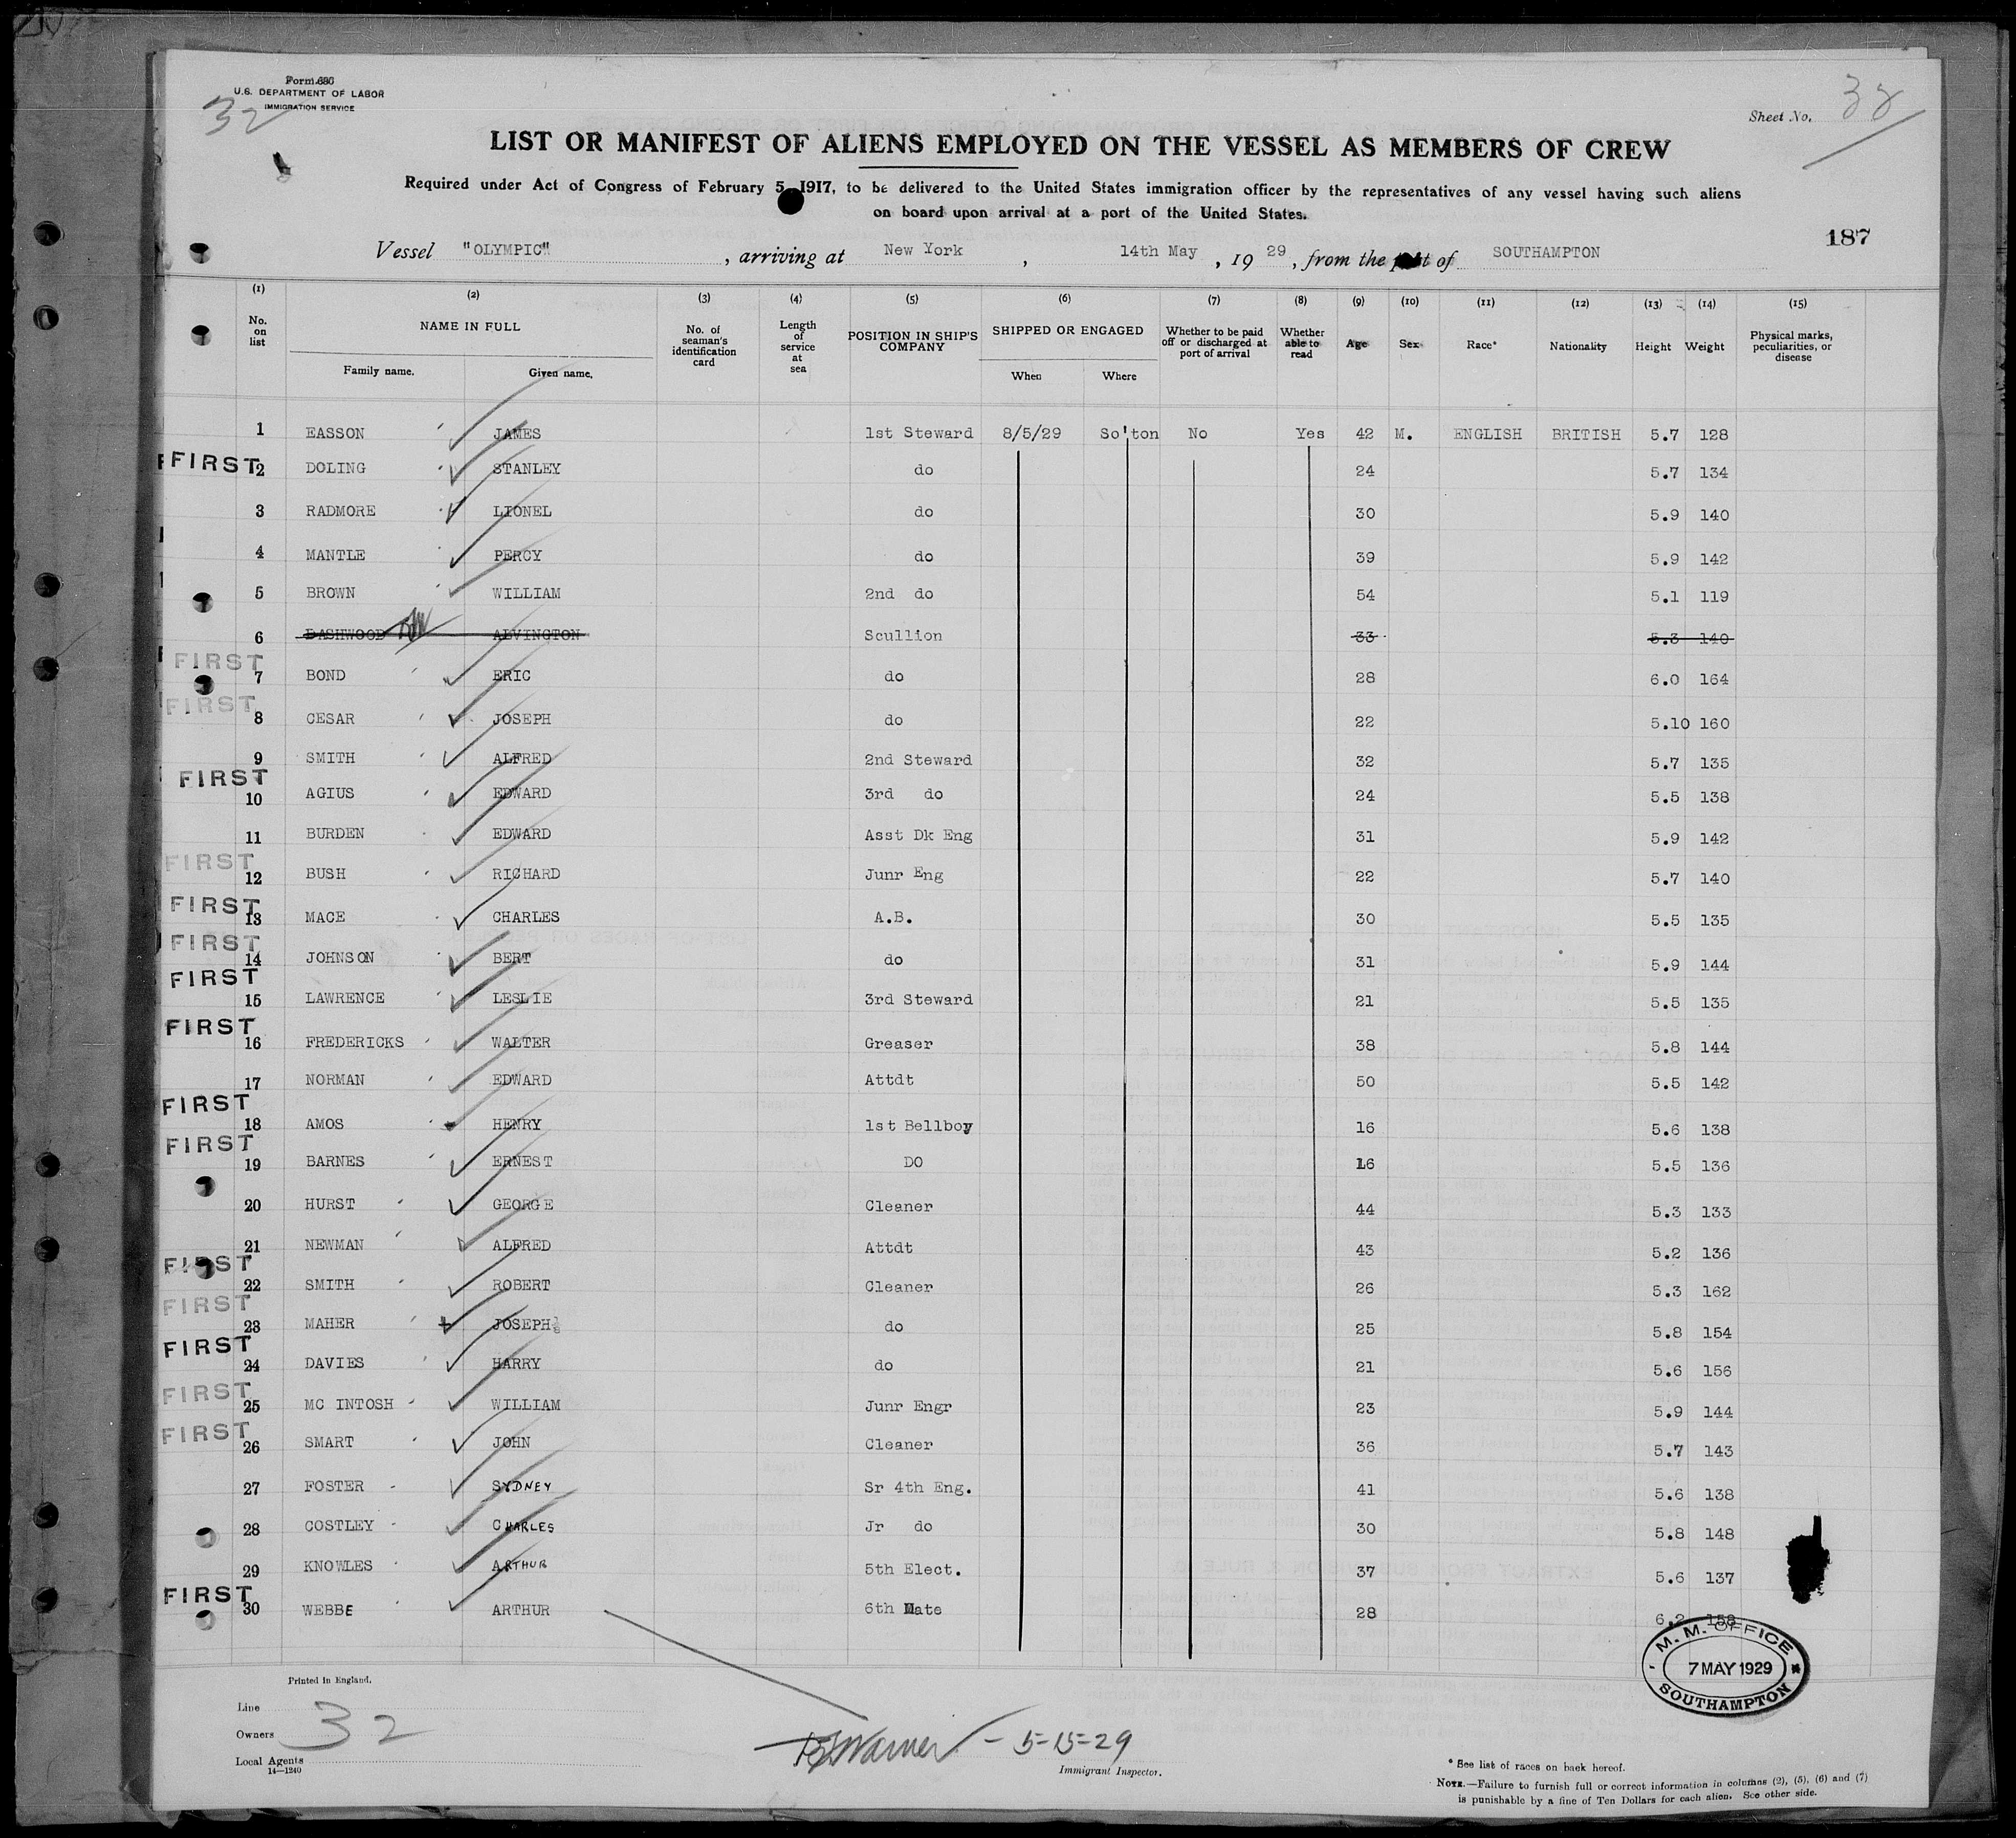 Form 680
U.S. DEPARTMENT OF LABOR
IMMIGRATION SERVICE
32
Sheet No. 32
LIST OR MANIFEST OF ALIENS EMPLOYED ON THE VESSEL AS MEMBERS OF CREW
Required under Act of Congress of February 5, 1917, to be delivered to the United States immigration officer by the representatives of any vessel having such aliens
on board upon arrival at a port of the United States.
187
Vessel "OLYMPIC", arriving at New York, 14th May, 1929, from the port of SOUTHAMPTON
(1) (2) (3) (4) (5) (6) (7) (8) (9) (10) (11) (12) (13) (14) (15)
No. on list NAME IN FULL Family name. Given name. No. of seaman's identification card Length of service at sea POSITION IN SHIP'S COMPANY SHIPPED OR ENGAGED When Where Whether to be paid off or discharged at port of arrival Whether able to read Age Sex Race* Nationality Height Weight Physical marks, peculiarities, or disease
1 EASSON JAMES 1st Steward 8/5/29 So'ton No Yes 42 M. ENGLISH BRITISH 5.7 128
FIRST 2 DOLING STANLEY do 24 5.7 134
3 RADMORE LIONEL do 30 5.9 140
4 MANTLE PERCY do 39 5.9 142
5 BROWN WILLIAM 2nd do 54 5.1 119
6 DASHWOOD ALVINGTON Scullion 33 5.3 140
FIRST
7 BOND ERIC do 28 6.0 164
FIRST
8 CESAR JOSEPH do 22 5.10 160
9 SMITH ALFRED 2nd Steward 32 5.7 135
FIRST
10 AGIUS EDWARD 3rd do 24 5.5 138
11 BURDEN EDWARD Asst Dk Eng 31 5.9 142
FIRST
12 BUSH RICHARD Junr Eng 22 5.7 140
FIRST
13 MACE CHARLES A.B. 30 5.5 135
FIRST
14 JOHNSON BERT do 31 5.9 144
FIRST
15 LAWRENCE LESLIE 3rd Steward 21 5.5 135
FIRST
16 FREDERICKS WALTER Greaser 38 5.8 144
17 NORMAN EDWARD Attdt 50 5.5 142
FIRST
18 AMOS HENRY 1st Bellboy 16 5.6 138
FIRST
19 BARNES ERNEST DO 16 5.5 136
20 HURST GEORGE Cleaner 44 5.3 133
21 NEWMAN ALFRED Attdt 43 5.2 136
FIRST
22 SMITH ROBERT Cleaner 26 5.3 162
FIRST
23 MAHER JOSEPH do 25 5.8 154
FIRST
24 DAVIES HARRY do 21 5.6 156
FIRST
25 MC INTOSH WILLIAM Junr Engr 23 5.9 144
FIRST
26 SMART JOHN Cleaner 36 5.7 143
27 FOSTER SYDNEY Sr 4th Eng. 41 5.6 138
28 COSTLEY CHARLES Jr do 30 5.8 148
29 KNOWLES ARTHUR 5th Elect. 37 5.6 137
FIRST
30 WEBBE ARTHUR 6th Mate 28 6.2 158
M. M. OFFICE
7 MAY 1929
SOUTHAMPTON
Printed in England.
Line
Owners 32
Local Agents
14—1240
Warner - 5-15-29
Immigrant Inspector.
* See list of races on back hereof.
NOTE.—Failure to furnish full or correct information in columns (2), (5), (6) and (7)
is punishable by a fine of Ten Dollars for each alien. See other side.